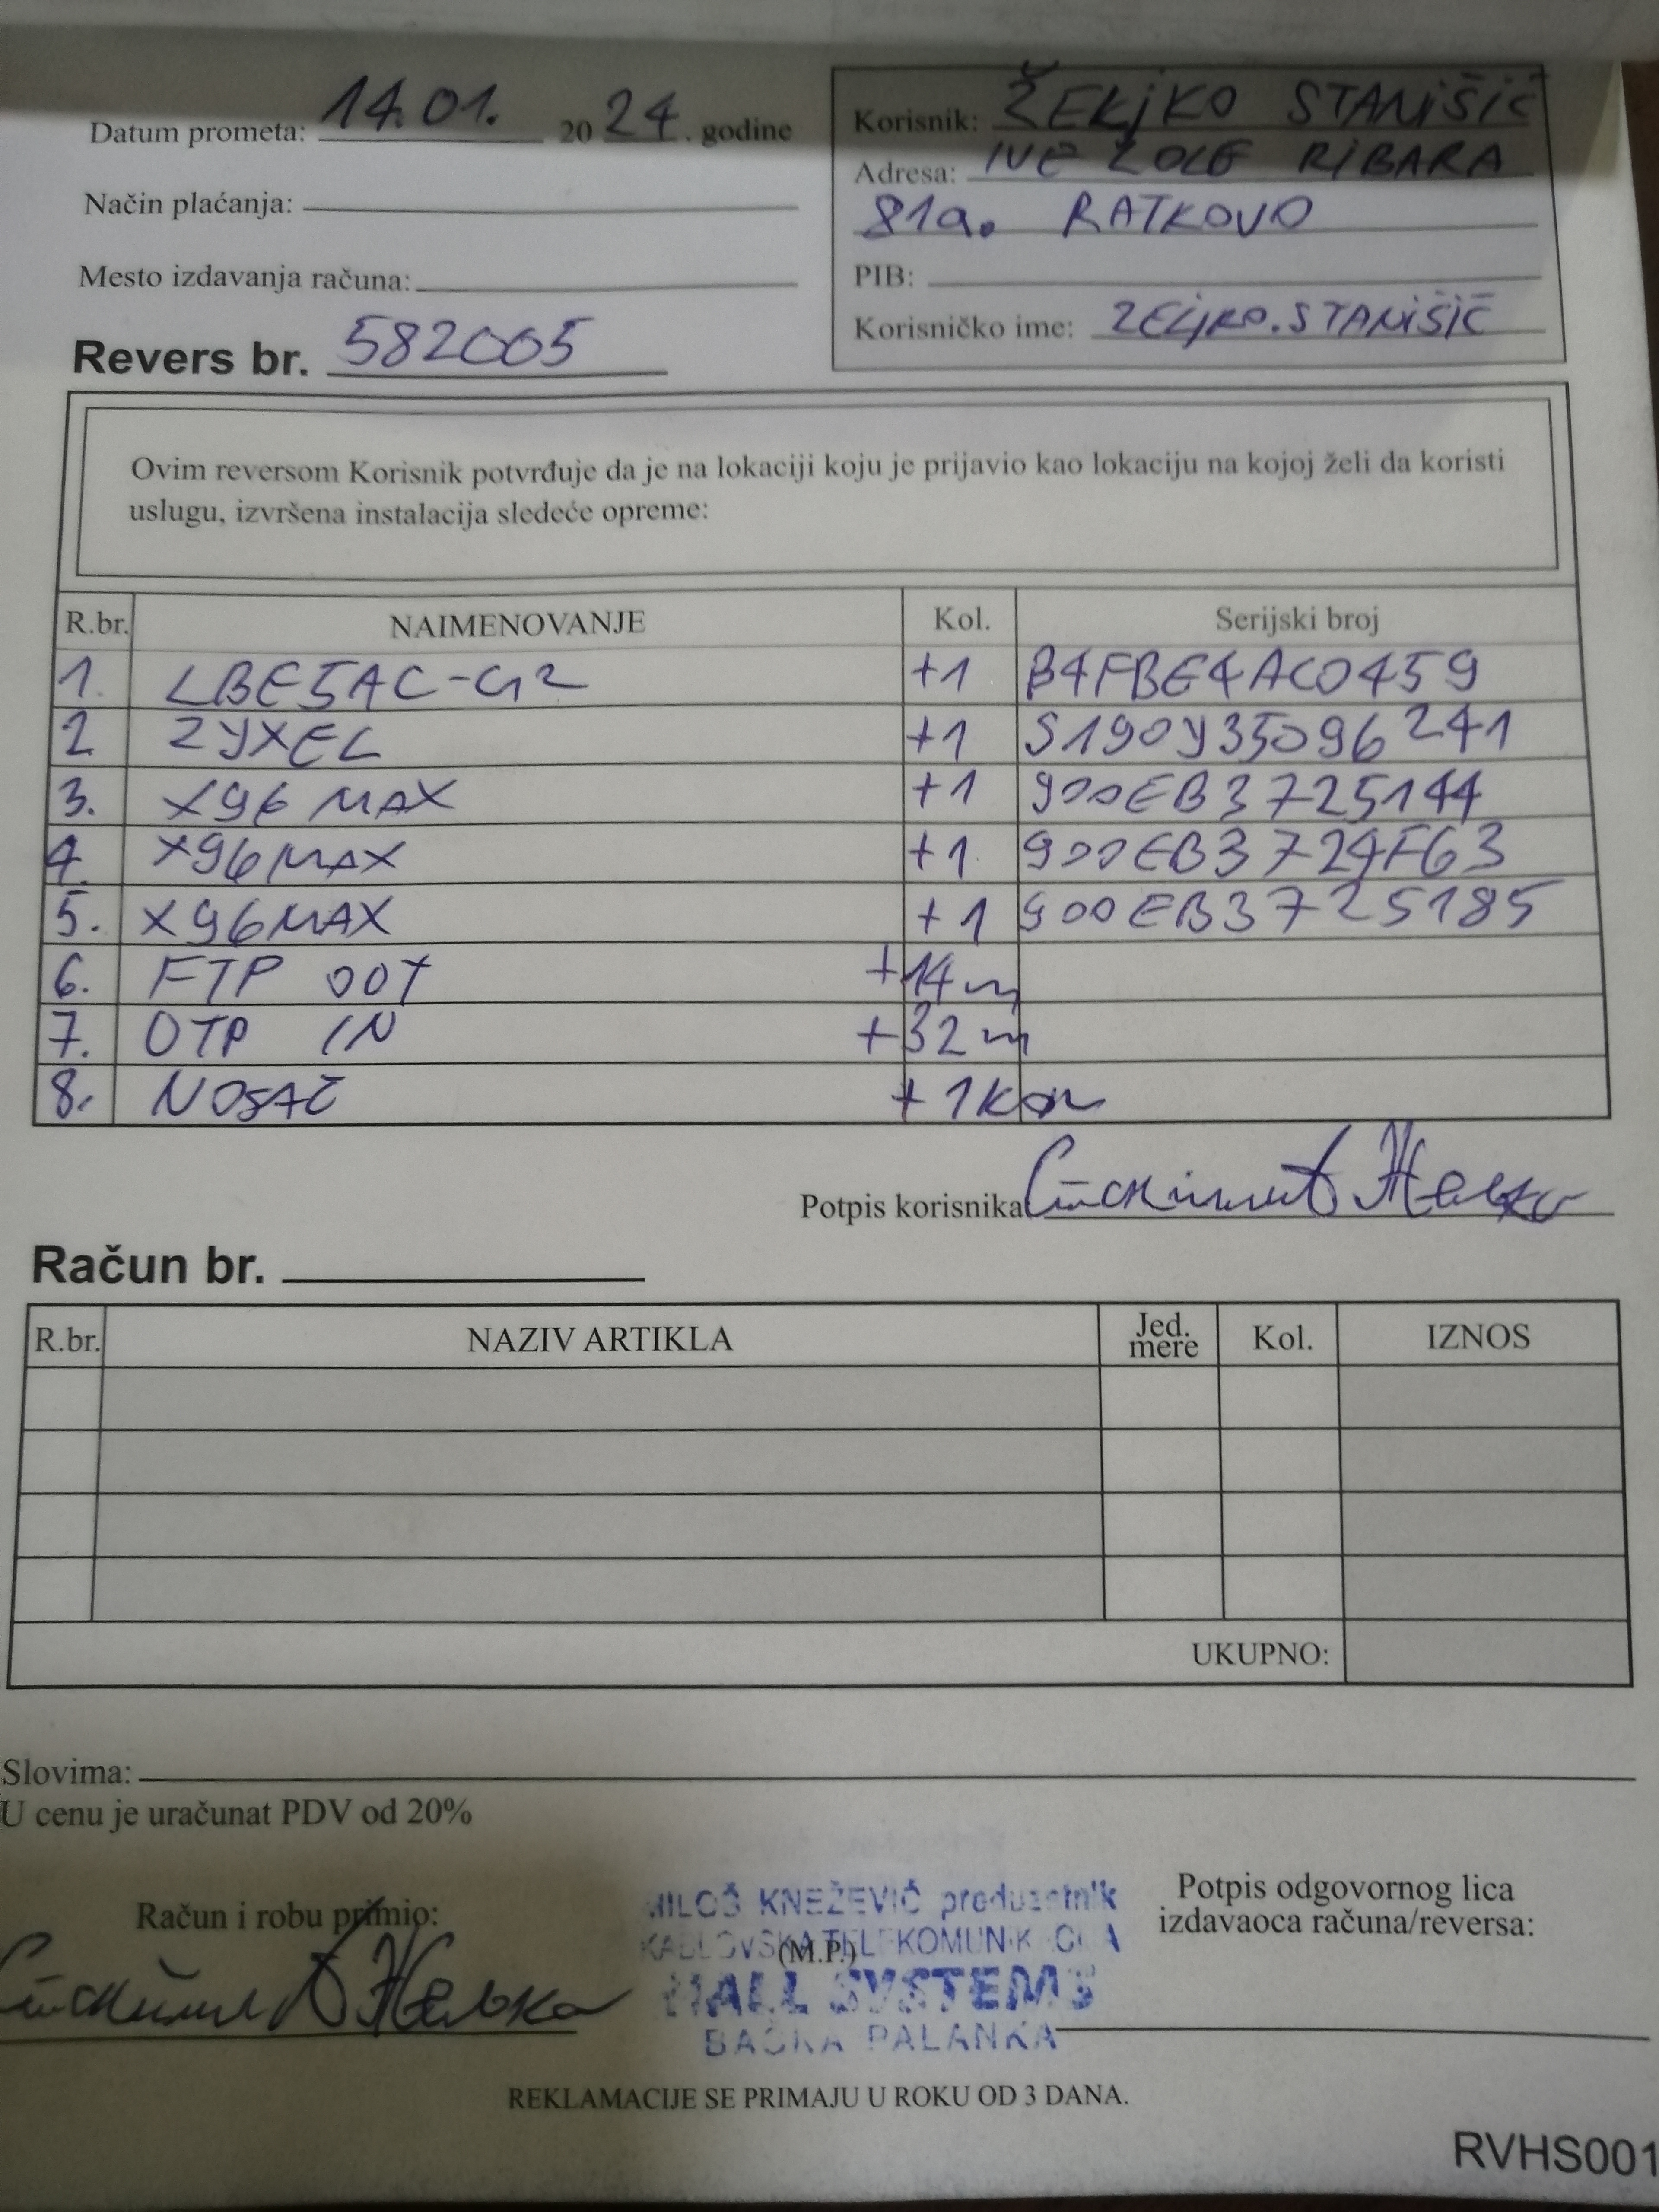 Datum prometa: 14.01. 2024. godine
Način plaćanja:
Mesto izdavanja računa:
Revers br. 582005
Korisnik: ŽELJKO STANIŠIĆ
Adresa: IVE LOLE RIBARA
81a. RATKOVO
PIB:
Korisničko ime: ZELJKO.STANIŠIĆ
Ovim reversom Korisnik potvrđuje da je na lokaciji koju je prijavio kao lokaciju na kojoj želi da koristi
uslugu, izvršena instalacija sledeće opreme:
R.br. NAIMENOVANJE Kol. Serijski broj
1. LBE5AC-G2 +1 B4FBE4AC0459
2 ZYXEL +1 S190Y35096241
3. X96 MAX +1 900EB3725144
4. X96MAX +1 900EB3724F63
5. X96MAX +1 900EB3725185
6. FTP OUT +14m
7. UTP IN +32m
8. NOSAČ +1kom
Potpis korisnika
Račun br.
R.br. NAZIV ARTIKLA Jed. mere Kol. IZNOS
UKUPNO:
Slovima:
U cenu je uračunat PDV od 20%
Račun i robu primio:
MILOŠ KNEŽEVIĆ preduzetnik
KABLOVSKA TELEKOMUNIKACIJA
(M.P.)
HALL SYSTEMS
BAČKA PALANKA
Potpis odgovornog lica
izdavaoca računa/reversa:
REKLAMACIJE SE PRIMAJU U ROKU OD 3 DANA.
RVHS001